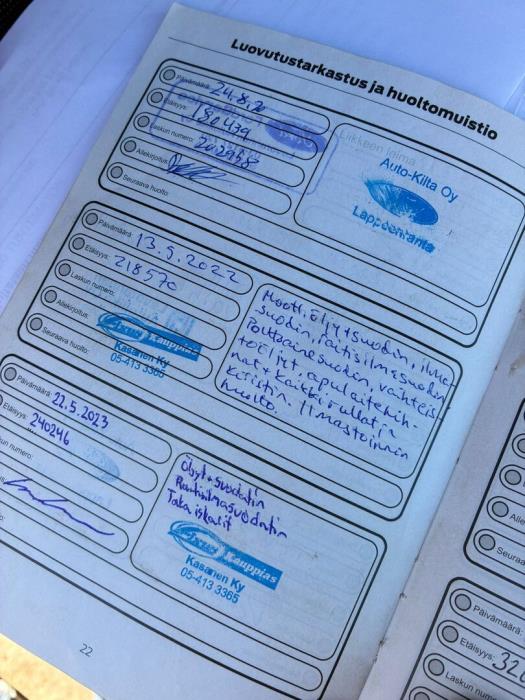 Luovutustarkastus ja huoltomuistio
Päivämäärä: 24.8.2
Etäisyys: 180439
Laskun numero: 202958
Allekirjoitus:
Seuraava huolto:
Liikkeen leima
Auto-Kilta Oy
Lappeenranta
Päivämäärä: 13.5.2022
Etäisyys: 218570
Laskun numero:
Allekirjoitus:
Seuraava huolto:
Kauppias
Kasanen Ky
05-413 3365
Moott. öljy+suodin, ilma-
suodin, raitisilmasuodin
Polttoainesuodin, vaihteis-
töljyt, apulaitehih-
nat+kaikki rullat ja
kiristin. Ilmastoinnin
huolto.
Päivämäärä: 22.5.2023
Etäisyys: 240246
numero:
Öljyt+suodatin
Raitisilmasuodatin
Taka iskarit
Kauppias
Kasanen Ky
05-413 3365
22
Seuraa
Päivämäärä:
Etäisyys: 32
Laskun num